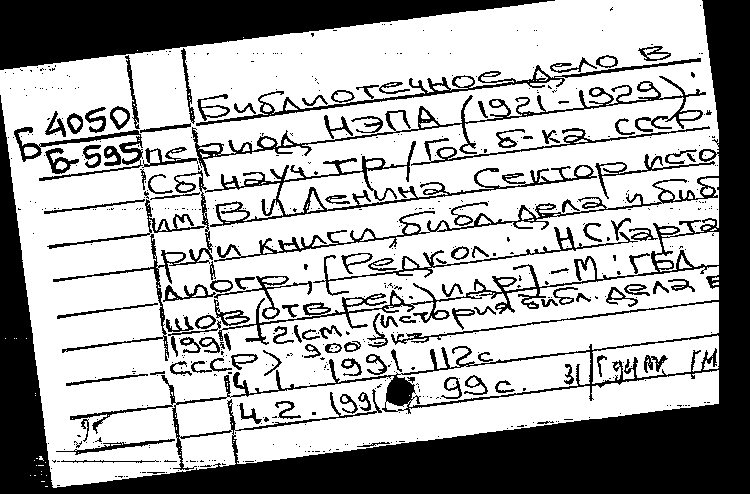 Библиотечное дело в
Б 4050
Б-595
период НЭПА (1921-1929):
Сб науч. тр. / Гос. б-ка СССР
им В.И. Ленина. Сектор исто
рии книги, библ. дела и биб
лиогр.; [Редкол.: ... Н.С. Карта
шов (отв. ред.) и др.]. - М.: ГБЛ,
1991 - 21см. (история библ. дела в
СССР) 900 экз.
Ч.1. 1991. 112с.
Ч.2. 1991 99с. 31
95